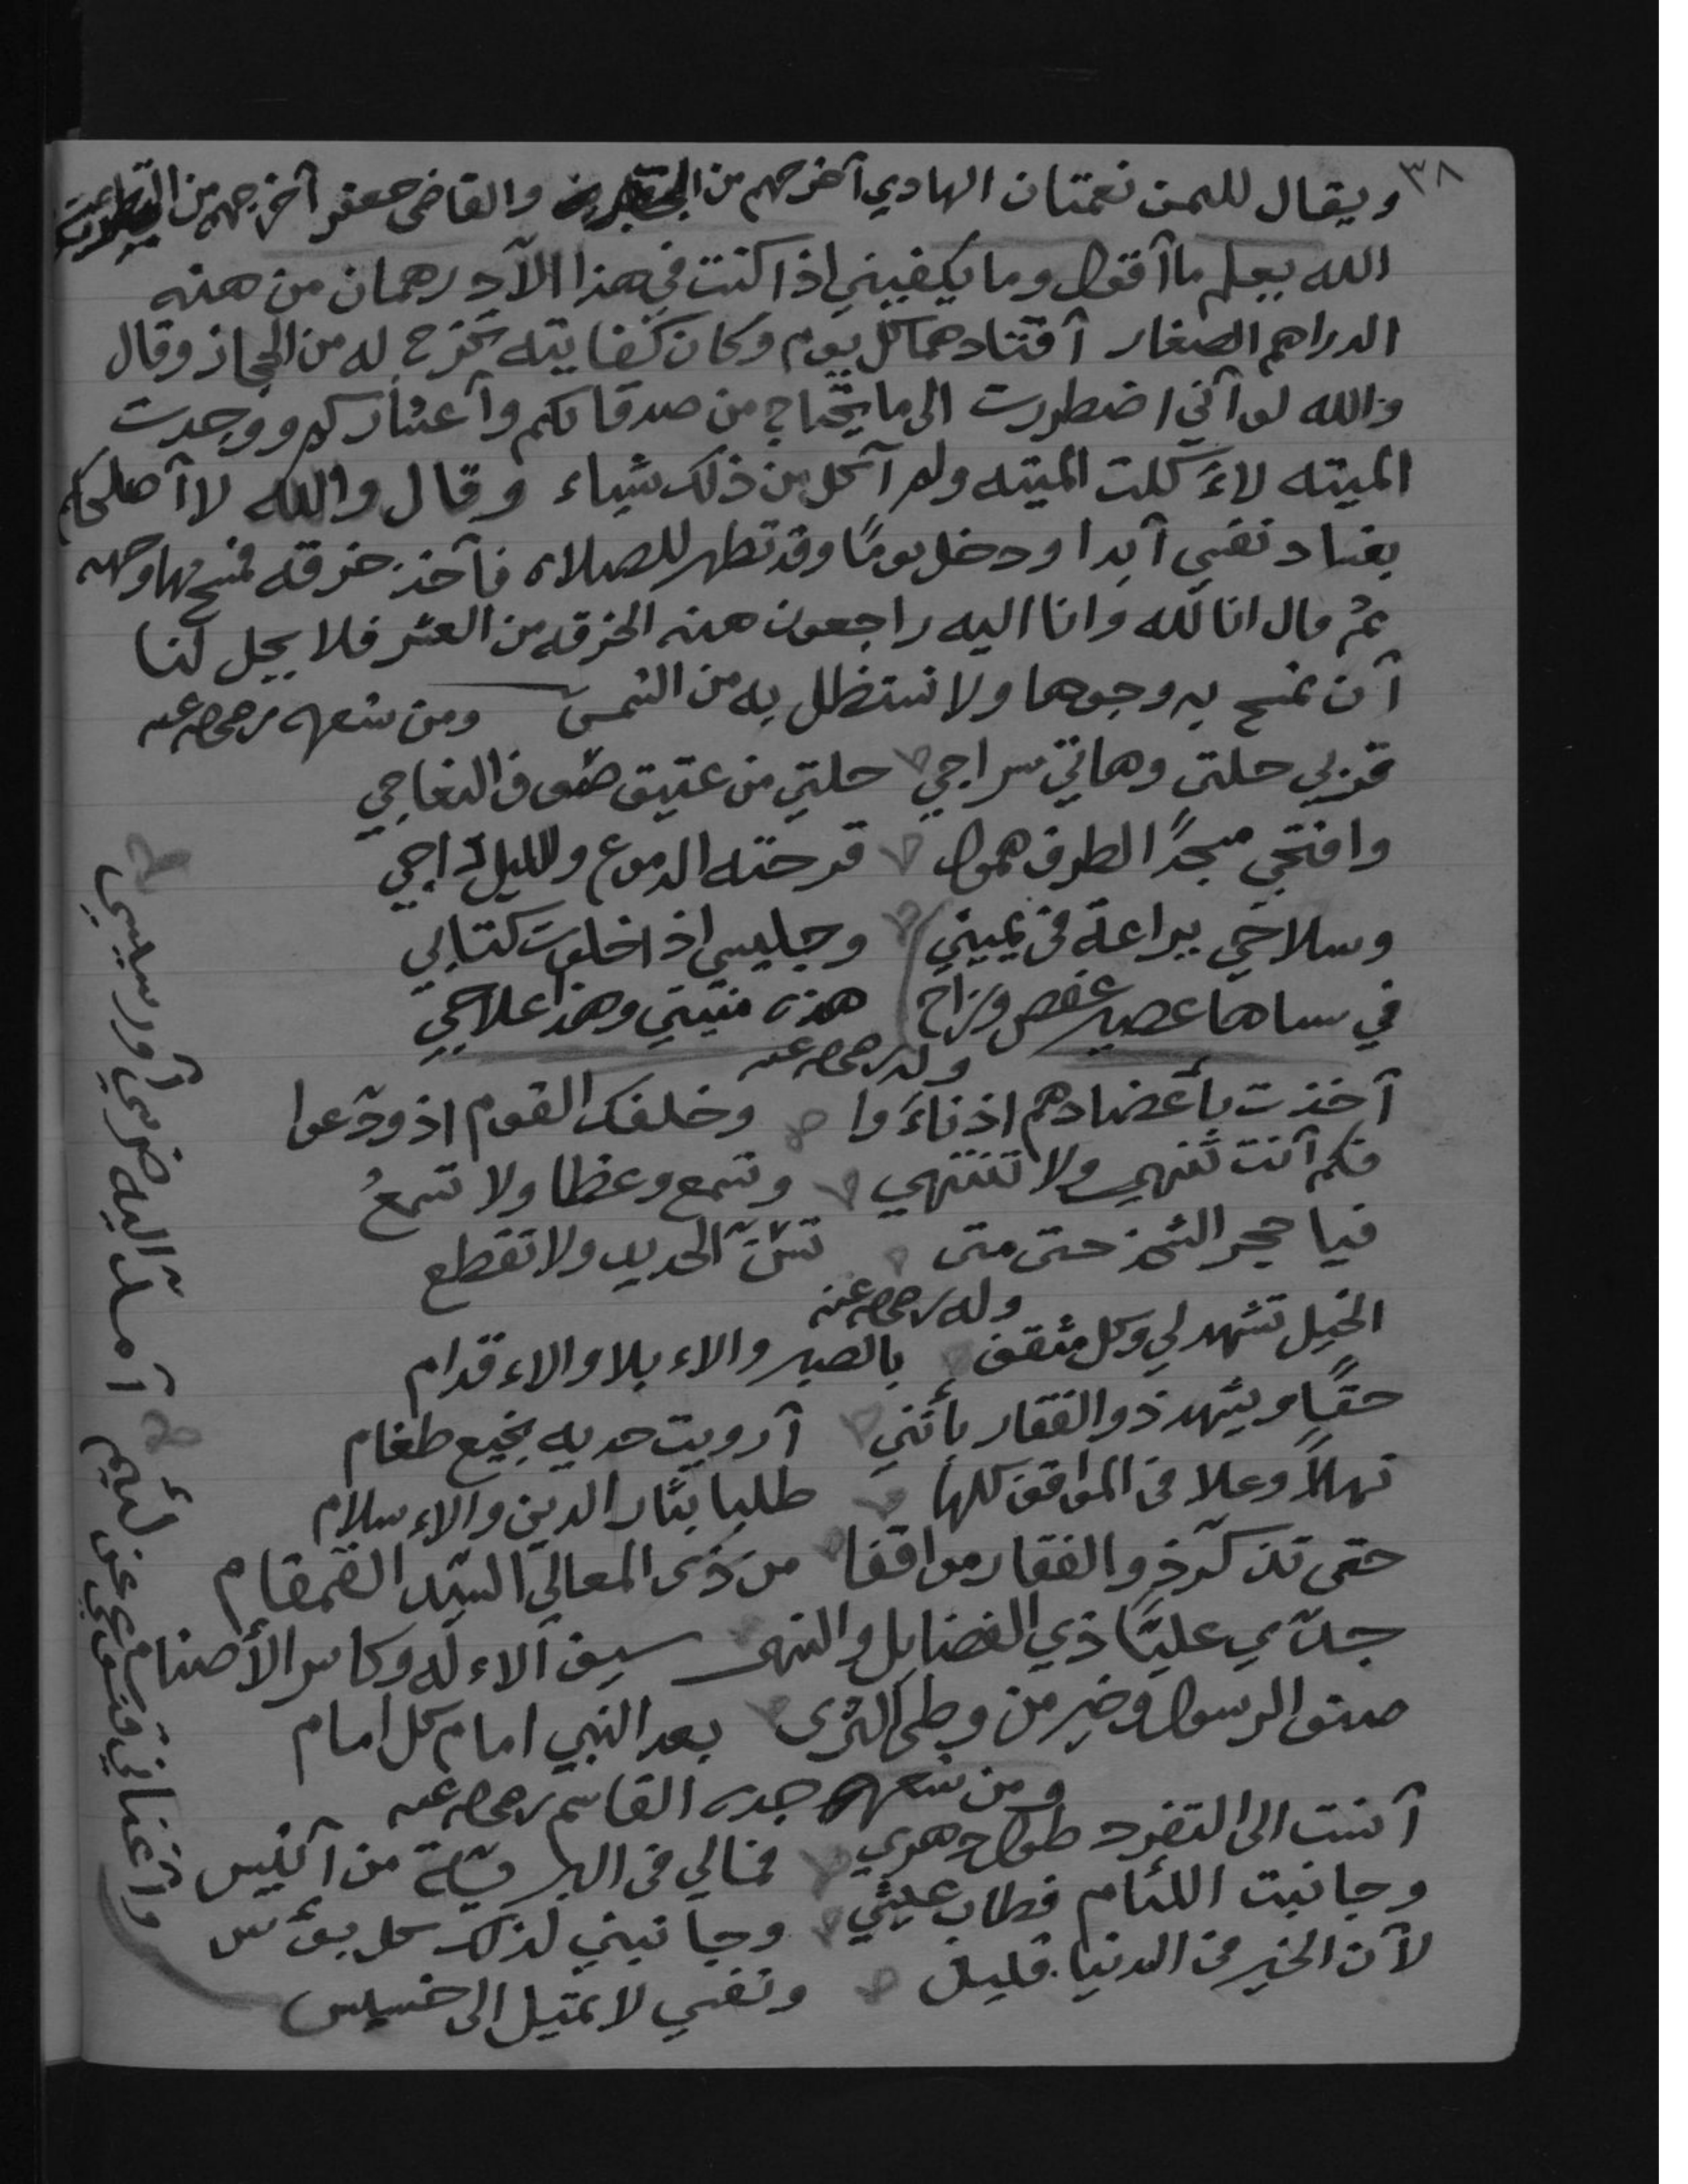 ٣٨
ويقال لليمن نعمتان الهادي آخرجهم من والقاضي جعفر آخرجهم من
الله يعلم ما آقول وما يكفيني اذا كنت في هذا الآ درهمان من هنه
الدراهم الصغار آقتادهما كل يوم وكان كفايته تخرج له من الحجاز وقال
والله لو آني اضطررت الى ما يحتاج من صدقاتكم وآعشاركم ووجدت
الميته لاءَكلت الميته ولم آكل من ذلك شياء وقال والله لا آصلحكم
بفساد نفسي آبدا ودخل يومًا وقد تطهر للصلاه فآخذ خرقه فمسح بها وجهه
ثم قال انا لله وانا اليه راجعون هنه الخرقه من العشر فلا يحل لنا
آن نمسح به وجوهما ولا نستظلل به من الشمس ومن شعره
قربي حلتي وهاتي سراجي حلتي من عتيق صوف النعاجي
وافتحي مبجدًا الطرف همول قرحته الدموع والليل داجي
وسلاحي يراعة في يميني وجليسي اذ اخلوت كتابي
في سناها عصير عفص وزاج هذه منيتي وهذا علاجي
وله
آخذت بأعضادهم اذ ناءَوا وخلفك القوم اذ ودّعوا
فكم آنت تنهى ولا تنتهي وتسمع وعظا ولا تسمعُ
فيا حجر الشحذ حتى متى تسُنّ الحديد ولا تقطع
وله
الخيل تشهد لي وكل مثقف بالصبر والاء بلا والاء قدام
حقًا ويشهد ذو الفقار بأنني آرويت حديه نجيع طغام
نهلاً وعلا في المواقف كلها طلبا بثار الدين والاء سلام
حتى تذكّر ذو الفقار مواقفا من ذى المعالي السيّد القمقام
جدّي عليًّا ذي الفضايل والنهى سيف الاء له وكاسر الأصنام
صنو الرسول وخير من وطى الثرى بعد النبي امام كل امام
ومن شعر جده القاسم
آنست الى التفرد طول دهري فمالي في البريّة من آنيس
وجانبت اللئام فطاب عيشي وجانبني لذلك كل بؤس
لآن الخير في الدنيا قليل ونفسي لا تميل الى خسيس
واغناني قنوعي عن لئيم آمدّ اليه ضرسي آو رسيسي